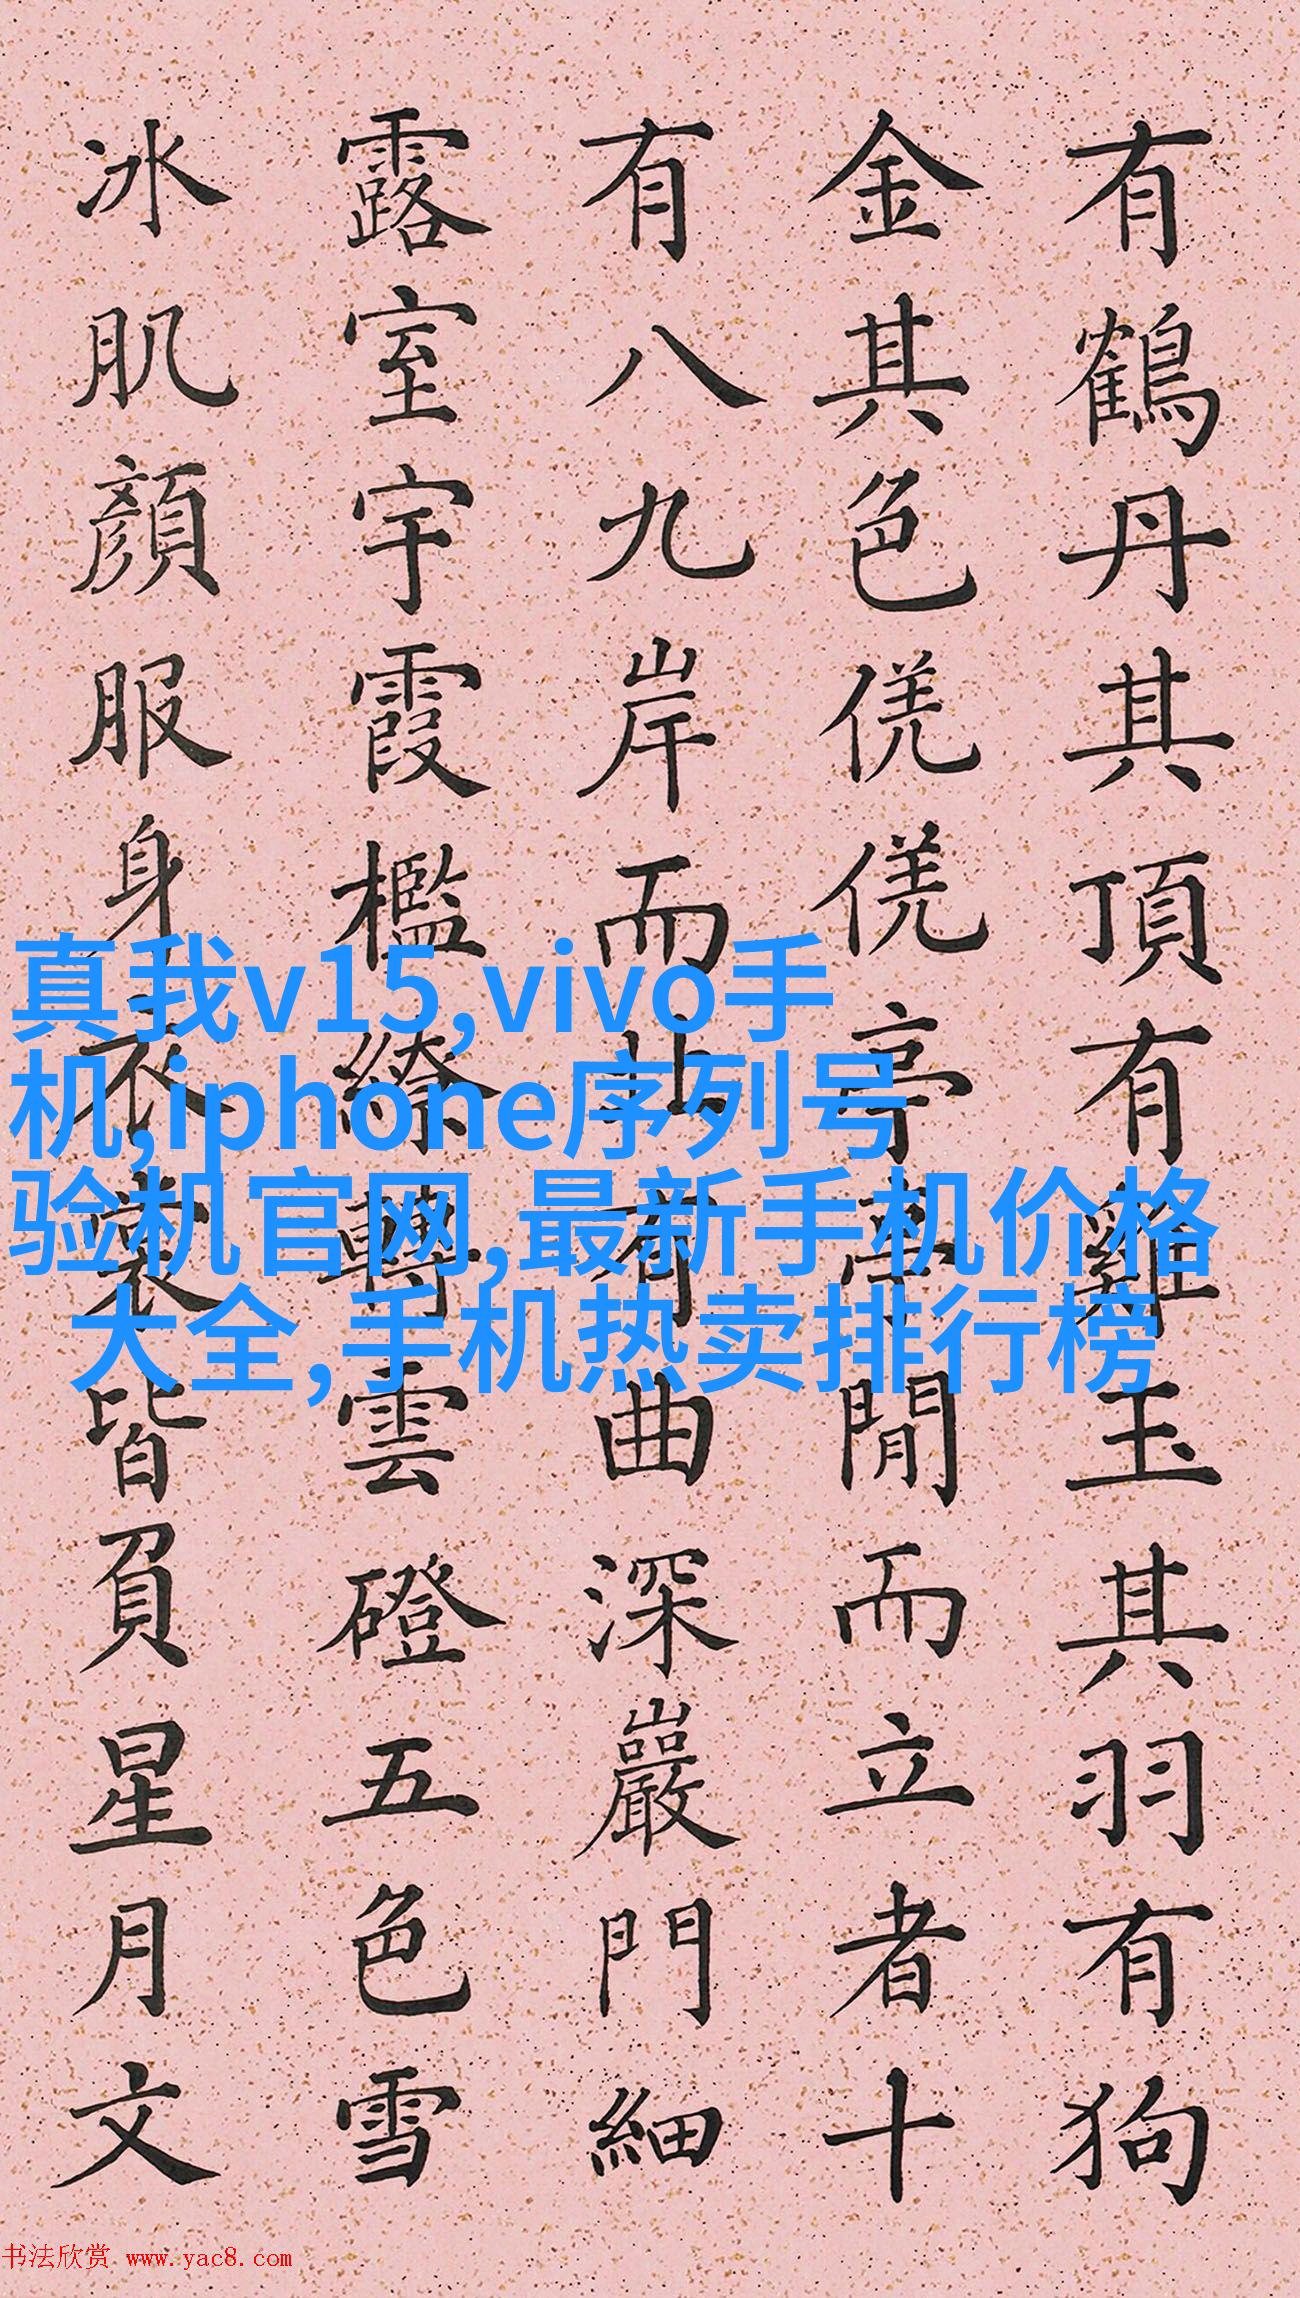 有鶴丹其頂有雞玉其羽有狗
金其色亭亭閒而立者十
有八九岸而有曲深巖門細
露室宇霞檻繚轉雲磴五色雪
冰肌顏服身衣裳皆負星月文
真我v15,vivo手
机,iphone序列号
验机官网,最新手机价格
大全,手机热卖排行榜
书法欣赏 www.yac8.com